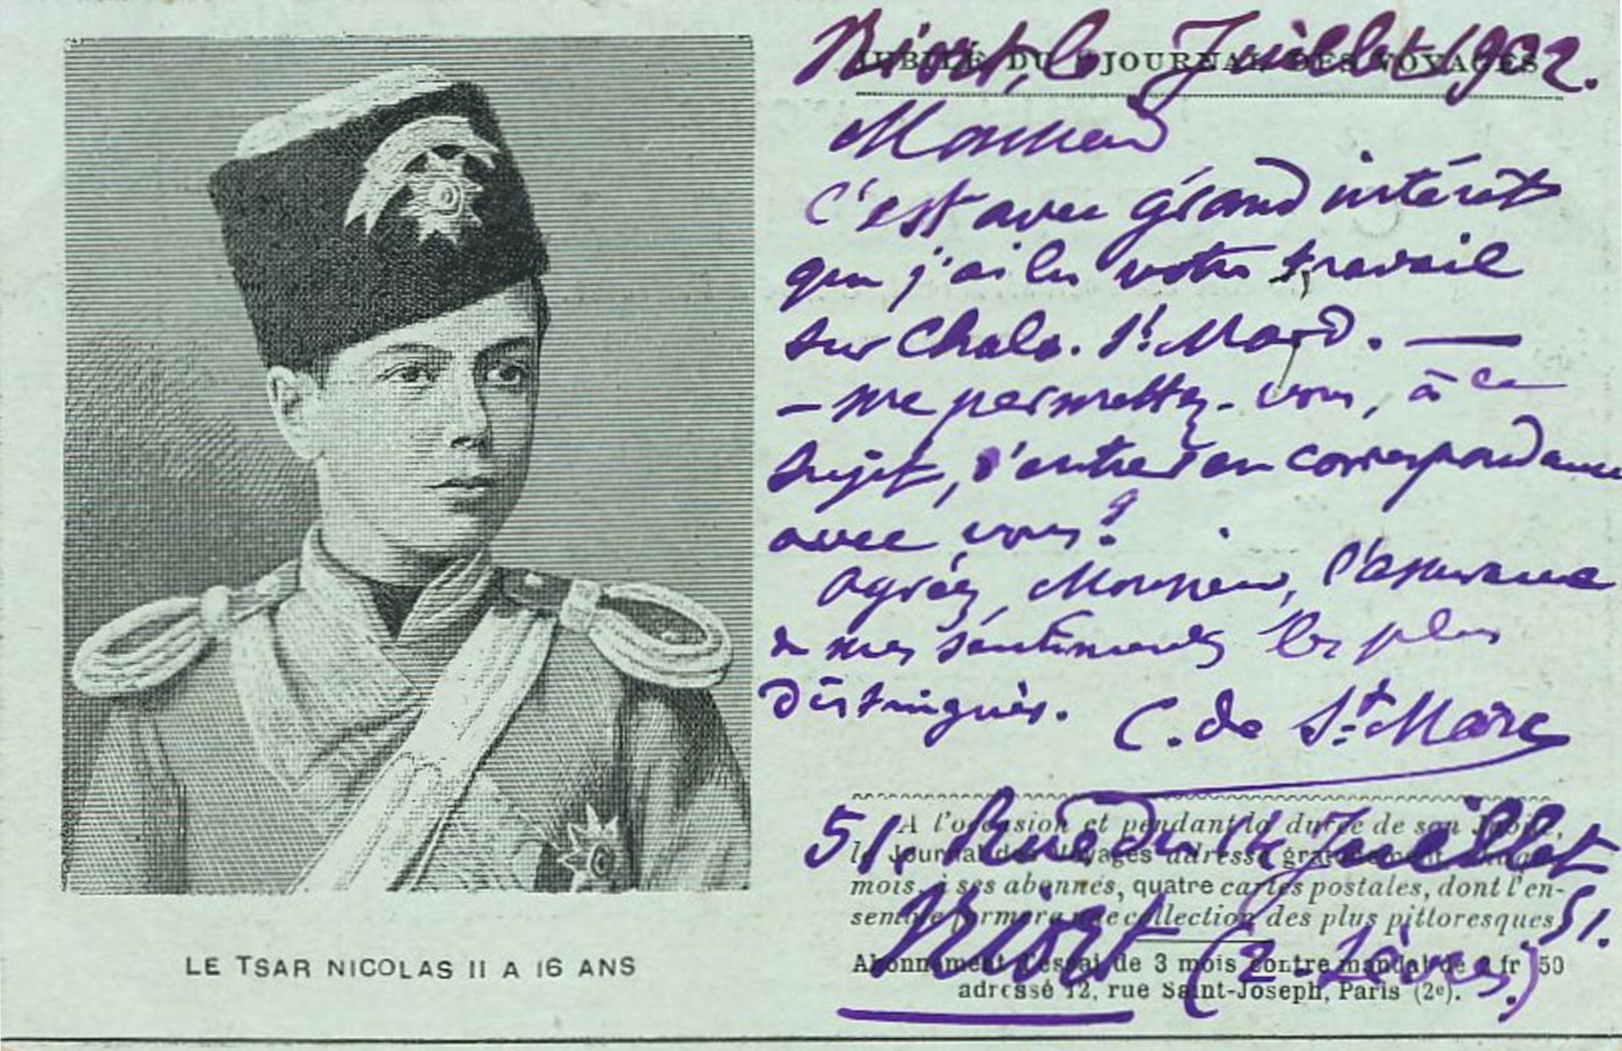 Niort, le Juillet 1902.
JUBILÉ DU "JOURNAL DES VOYAGES"
Monsieur
c'est avec grand intérêt
que j'ai lu votre travail
sur Chalo. St. Mard. —
— me permettez-vous, à ce
sujet, d'entrer en correspondance
avec vous?
agréez, Monsieur, l'assurance
de mes sentiments les plus
distingués. C. de St. Marc
51, Rue du 14 Juillet
51.
Niort (2-Sèvres)
A l'occasion et pendant la durée de son Jubilé,
le Journal des Voyages adresse gratuitement chaque
mois, à ses abonnés, quatre cartes postales, dont l'en-
semble formera une collection des plus pittoresques
Abonnement d'essai de 3 mois contre mandat de fr 50
adressé 12, rue Saint-Joseph, Paris (2e).
LE TSAR NICOLAS II A 16 ANS